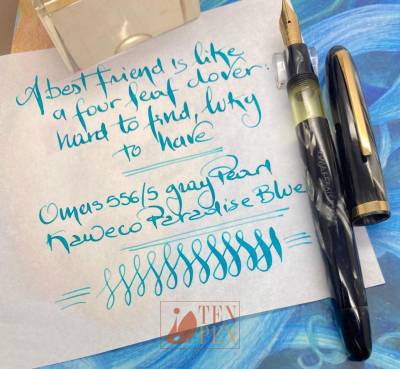 A best friend is like
a four leaf clover:
hard to find, luky
to have
Omas 556/S gray Pearl
Kaweco Paradise Blue
TEN
PEN